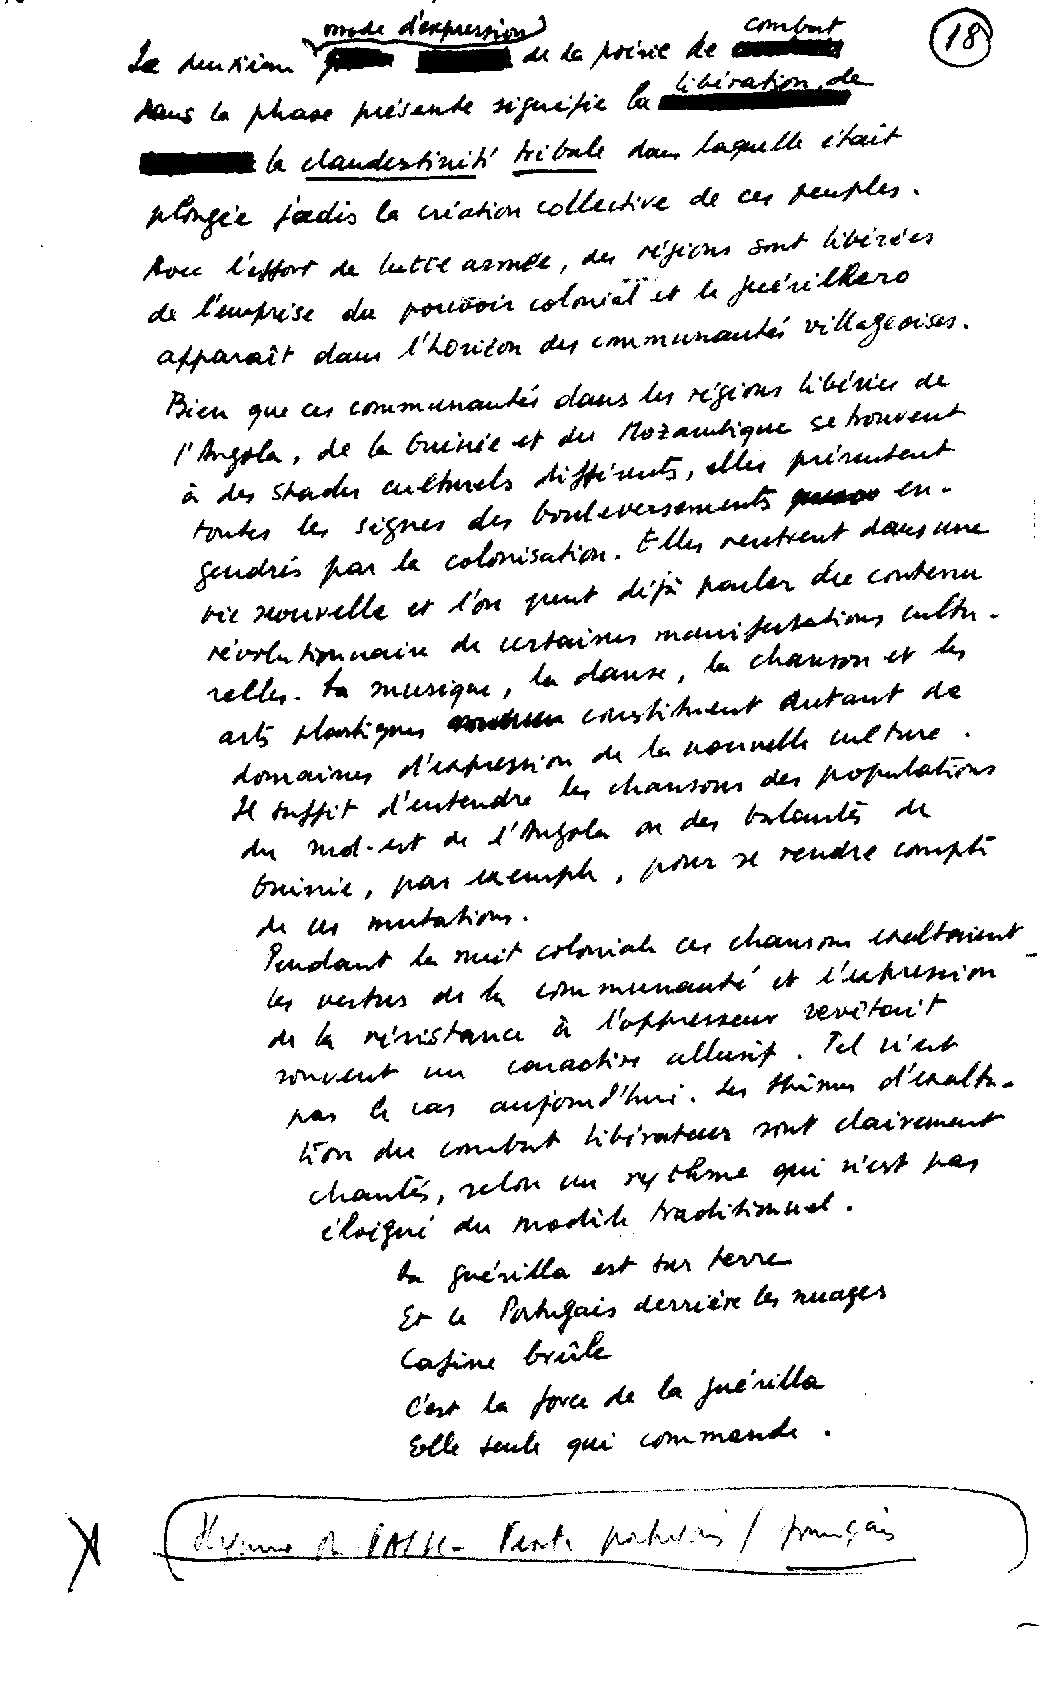 18
Le deuxième mode d'expression de la poésie de combat
dans la phase présente signifie la libération de
la clandestinité tribale dans laquelle était
plongée jadis la création collective de ces peuples.
Avec l'effort de lutte armée, des régions sont libérées
de l'emprise du pouvoir colonial et le guérilhero
apparaît dans l'horizon des communautés villageoises.
Bien que ces communautés dans les régions libérées de
l'Angola, de la Guinée et du Mozambique se trouvent
à des stades culturels différents, elles présentent
toutes les signes des bouleversements en-
gendrés par la colonisation. Elles rentrent dans une
vie nouvelle et l'on peut déjà parler du contenu
révolutionnaire de certaines manifestations cultu-
relles. La musique, la danse, la chanson et les
arts plastiques constituent autant de
domaines d'expression de la nouvelle culture.
Il suffit d'entendre les chansons des populations
du sud-est de l'Angola ou des balantes de
Guinée, par exemple, pour se rendre compte
de ces mutations.
Pendant la nuit coloniale ces chansons exaltaient
les vertus de la communauté et l'expression
de la résistance à l'oppresseur revêtait
souvent un caractère allusif. Tel n'est
pas le cas aujourd'hui. Les thèmes d'exalta-
tion du combat libérateur sont clairement
chantés, selon un rythme qui n'est pas
éloigné du modèle traditionnel.
La guérilla est sur terre
Et le Portugais derrière les nuages
Cafine brûle
C'est la force de la guérilla
Elle seule qui commande.
Hymne du PAIGC - Texte portugais / français